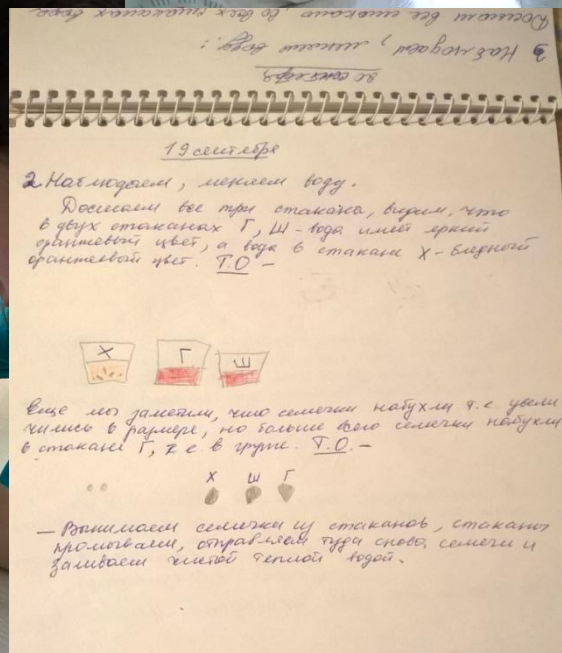 Достаем все стаканы, во всех стаканах вода
3 Наблюдаем, меняем воду:
20 сентября
19 сентября
2 Наблюдаем, меняем воду.
Достаем все три стакана, видим, что
в двух стаканах Г, Ш - вода имеет яркий
оранжевый цвет, а вода в стакане Х - бледный
оранжевый цвет. Т.О -
Х Г Ш
Еще мы заметили, что семечки набухли т.е. увели
чились в размере, но больше всего семечки набухли
в стакане Г, т.е. в груше. Т.О. -
Х Ш Г
- Вынимаем семечки из стаканов, стаканы
промываем, отправляем туда снова семечки и
заливаем чистой теплой водой.